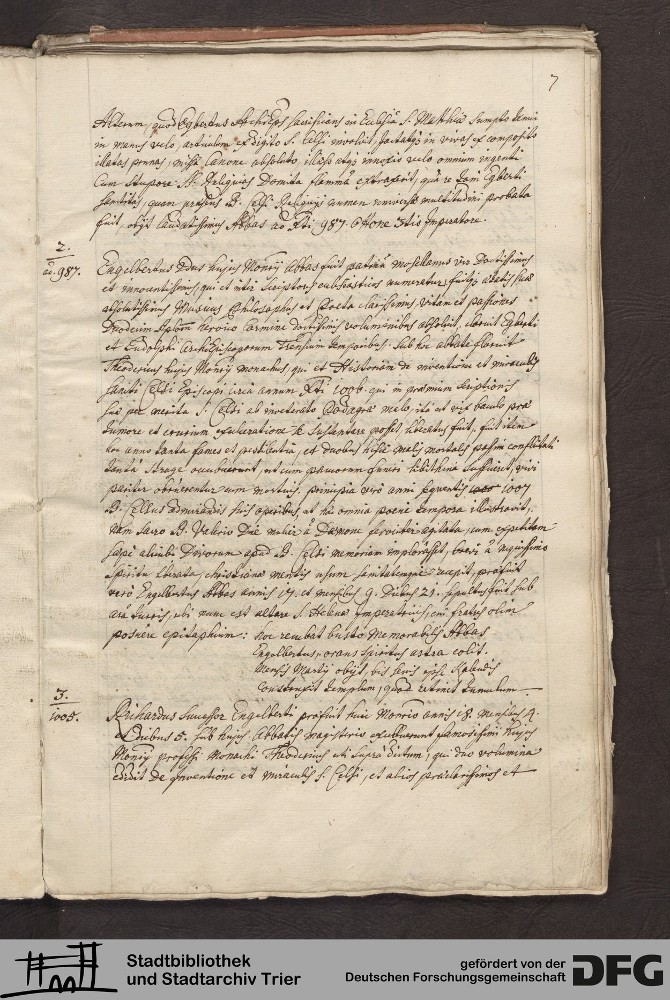 7
Alterum, quod Egbertus ArchiEps sacrificans in Ecclesia S. Matthiae sumpto tenui
in manus velo, articulum ex digito S. Celsi involvit, jactatq; in vivas ex composito
illatas prunas, missae canone absoluto, illaeso atq; innoxio velo omnium ingenti
Cum stupore SS. Reliquias Domita flamma extraxerit, qua re tam Egberti
sanctitas, quam praesens B. Celsi Reliquijs numen universae multitudini probata
fuit, obijt laudatissimus Abbas ao Xti 987. Ottone 3tio Imperatore.
2.
ao. 987.
Engelbertus 2dus hujus Monrij Abbas fuit patria mosellanus vir Doctissimus
et innocentissimus, qui et inter scriptores ecclesiasticos numeratur, fuitq; aetatis suae
absolutissimus Musicus Philosophus et Poeta clarissimus, vitam et passiones
Duodecim Aplorum heroico carmine doctissimis voluminibus absolvit, claruit Egberti
et Ludolphi ArchiEpiscoporum Trensium temporibus. sub hoc abbate floruit
Theodericus hujus Monrij monachus, qui et Historiam de inventione et miraculis
Sancti Celsi Episcopi circa annum Xti 1006 qui in praemium scriptionis
suae per merita S. Celsi ab inveterato Podagrae malo, ita ut vix baculo prae
tumore et crurium exulceratione se sustentare posset liberatus fuit, fuit item
hoc anno tanta fames et pestilentia, et duobus hisce malis mortales passim conflictati
tanta strage occubuerunt, ut cum pauorum funeri libithina sufficeret, vivi
pariter obruerentur cum mortuis. principio vero anni sequentis 1007
B. Celsus admirandis suis operibus ut haec omnia poene tempora illustravit,
nam sacro B. Valerio Die mulier a Daemone saeviter agitata, cum expetitam
saepe alibi Divorum apud B. Celsi memoriam implorasset, brevi a nequissimo
spiritu liberata, christianae mentis usum sanitatemque recepit, praefuit
vero Engelbertus Abbas annis 17. et mensibus 9. Diebus 21. sepultus fuit sub
ara turris, ubi nunc est altare S. Helenae Imperatricis, cui fratres olim
posuere epitaphium: hoc recubat busto Memorabilis Abbas
Engelbertus, orans spiritus astra colit.
Mensis Martij obijt, bis senis ipse Kalendis
Construxit templum, quod retinet tumulum.
3.
1005.
Richardus successor Engelberti praefuit huic Monrio annis 18. mensibus 4.
et diebus 5. sub hujus Abbatis magisterio exuberunt famosissimi hujus
Monrij professi Monachi Theodericus uti supra dictum, qui duo volumina
edidit de inventione et miraculis S. Celsi, et alios praeclarissimos et
Stadtbibliothek
und Stadtarchiv Trier
gefördert von der
Deutschen Forschungsgemeinschaft
DFG